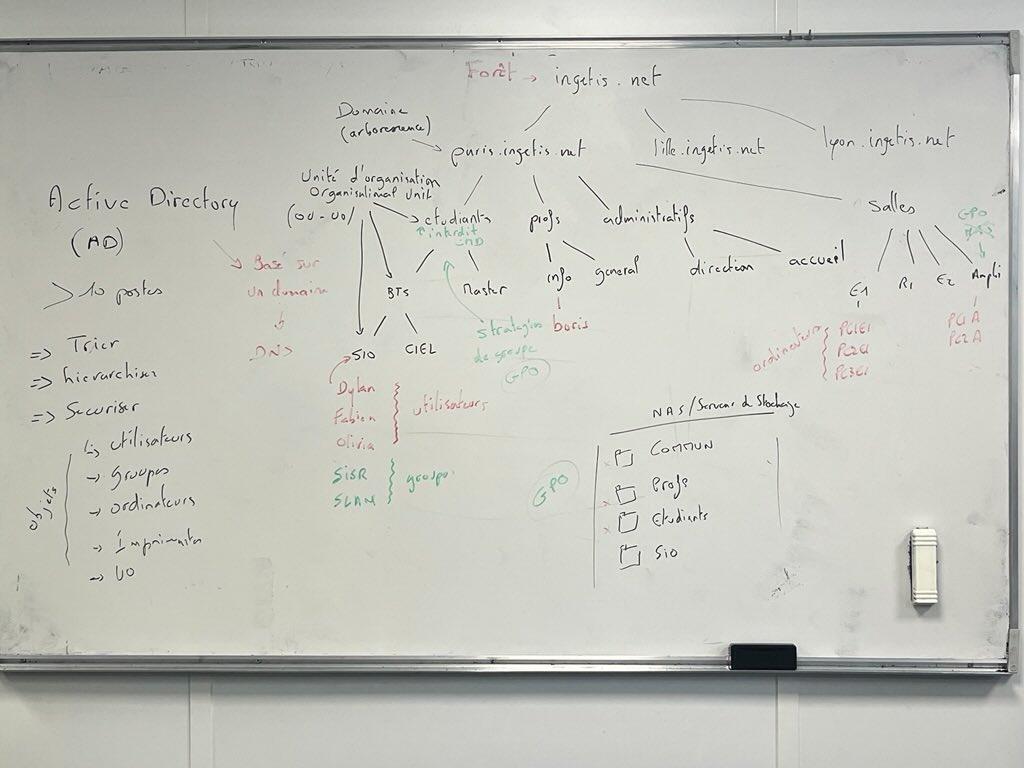 Forêt → ingetis.net
Domaine
(arborescence)
paris.ingetis.net
lille.ingetis.net
lyon.ingetis.net
Active Directory
(AD)
> 10 postes
=> Trier
=> hierarchiser
=> Securiser
↳ utilisateurs
→ groupes
→ ordinateurs
→ Imprimantes
→ UO
objets
Basé sur
un domaine
DNS
Unité d'organisation
Organisational Unit
(OU - UO)
etudiants
interdit
CMD
profs
administratifs
Salles
GPO
BTS
Master
info
general
direction
accueil
E1
R1
E2
Amphi
SIO
CIEL
stratégies
de groupe
GPO
boris
ordinateurs
PC1E1
PC2E1
PC3E1
PC1A
PC2A
Dylan
Fabien
Olivia
utilisateurs
SISR
SLAM
groupes
GPO
NAS/Serveur de Stockage
COMMUN
Profs
Etudiants
Sio